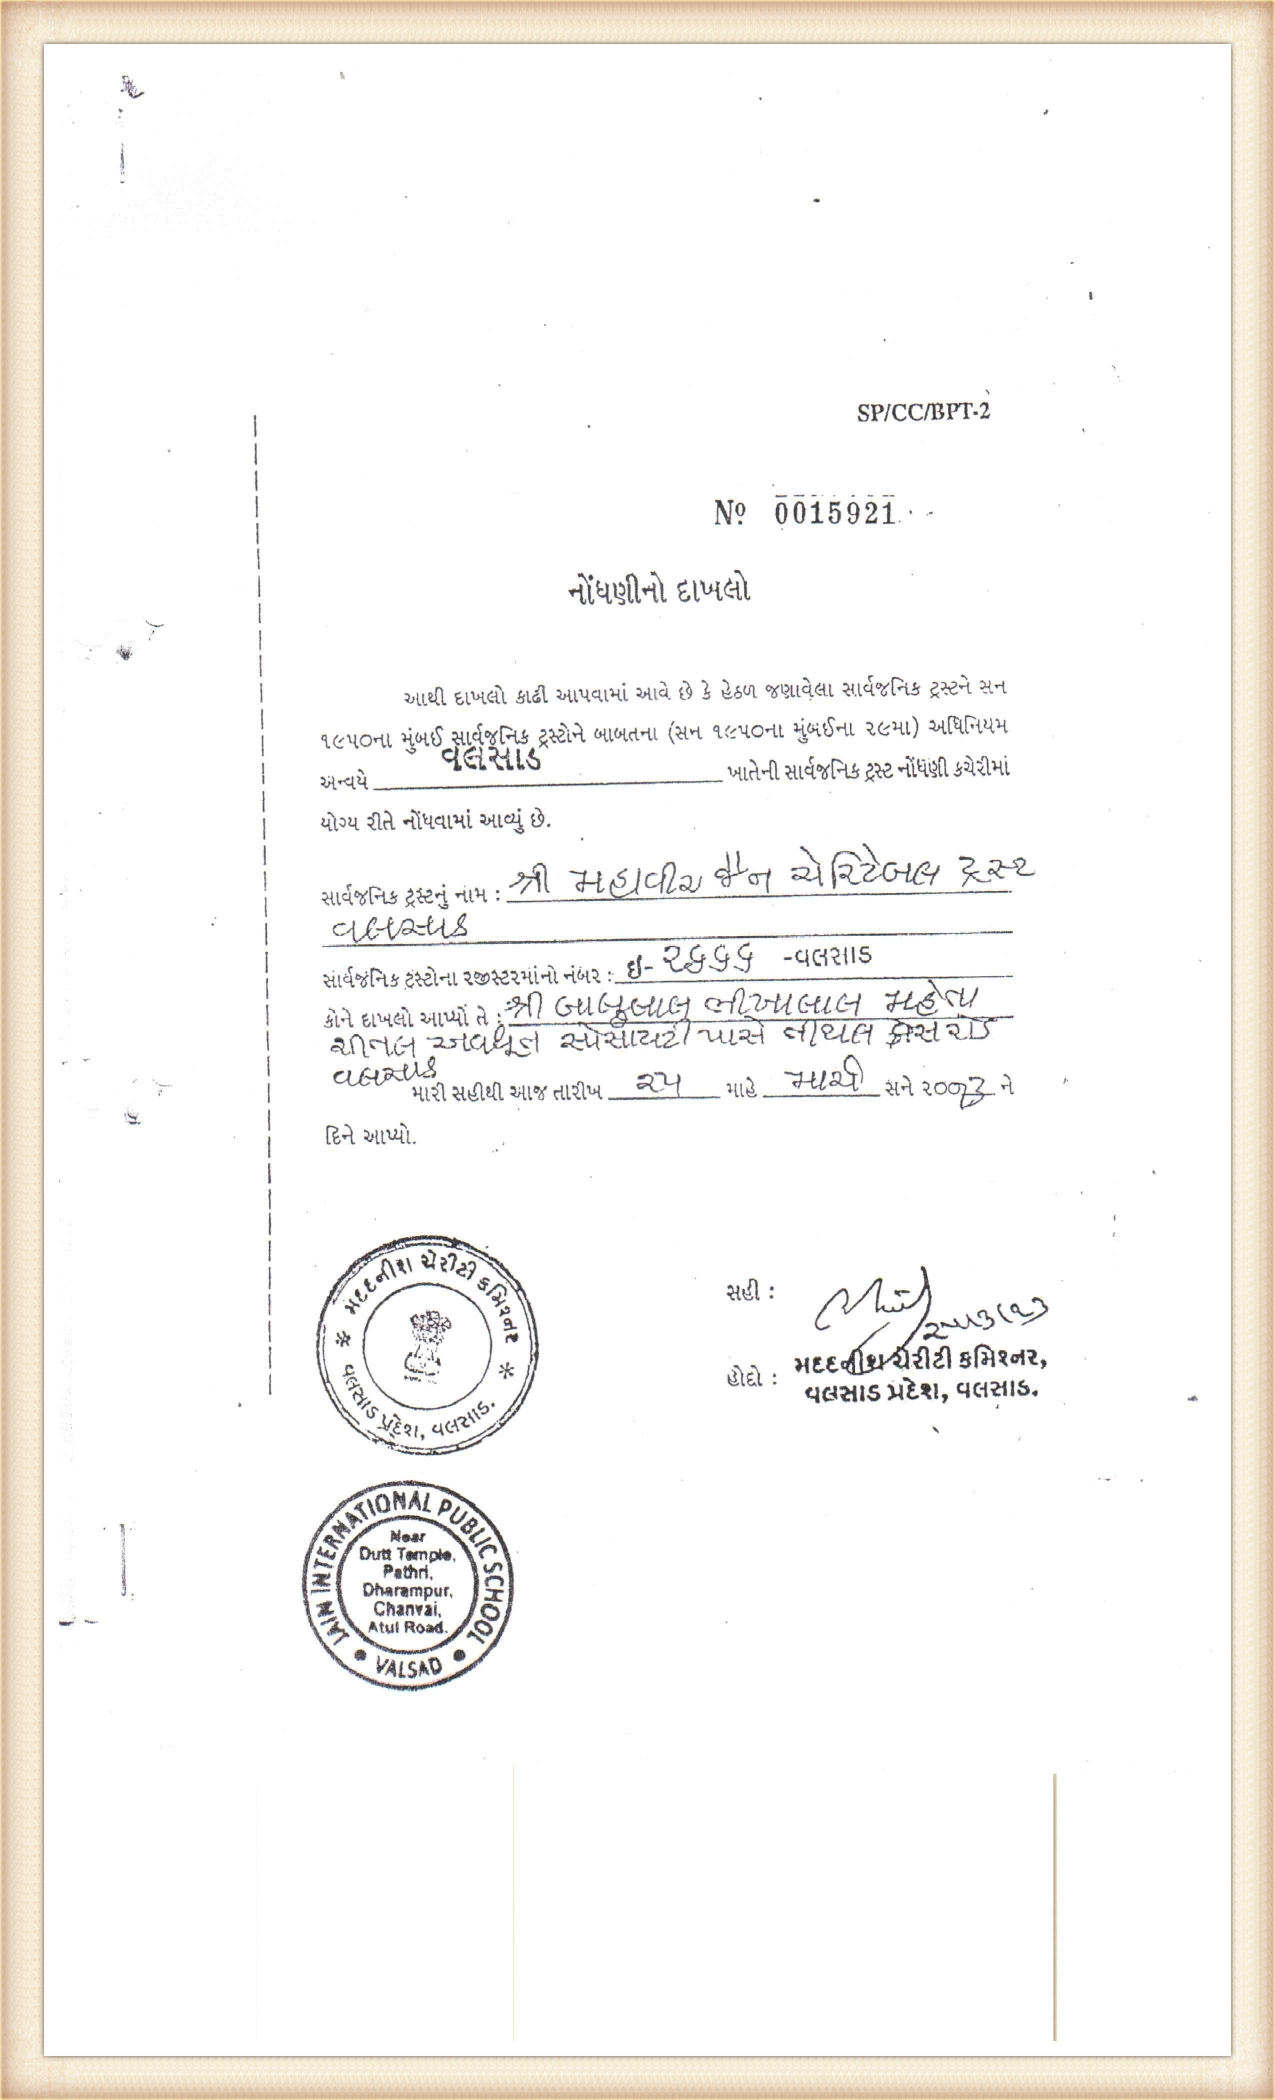 SP/CC/BPT-2
Nº 0015921
નોંધણીનો દાખલો
આથી દાખલો કાઢી આપવામાં આવે છે કે હેઠળ જણાવેલા સાર્વજનિક ટ્રસ્ટને સન
૧૯૫૦ના મુંબઈ સાર્વજનિક ટ્રસ્ટોને બાબતના (સન ૧૯૫૦ના મુંબઈના ૨૯મા) અધિનિયમ
અન્વયે વલસાડ ખાતેની સાર્વજનિક ટ્રસ્ટ નોંધણી કચેરીમાં
યોગ્ય રીતે નોંધવામાં આવ્યું છે.
સાર્વજનિક ટ્રસ્ટનું નામ : શ્રી મહાવીર જૈન ચેરિટેબલ ટ્રસ્ટ
વલસાડ
સાર્વજનિક ટ્રસ્ટોના રજીસ્ટરમાંનો નંબર : ઇ- ૨૬૬૬ -વલસાડ
કોને દાખલો આપ્યો તે : શ્રી બાબુલાલ ભીખાલાલ મહેતા
શીતલ અવધૂત સોસાયટી પાસે તીથલ ક્રોસ રોડ
વલસાડ
મારી સહીથી આજ તારીખ ૨૫ માહે માર્ચ સને ૨૦૦૩ ને
દિને આપ્યો.
મદદનીશ ચેરીટી કમિશ્નર
વલસાડ પ્રદેશ, વલસાડ.
સહી :
૨૫/૩/૦૩
હોદ્દો : મદદનીશ ચેરીટી કમિશ્નર,
વલસાડ પ્રદેશ, વલસાડ.
JAIN INTERNATIONAL PUBLIC SCHOOL
Near
Dutt Temple,
Pathri,
Dharampur,
Chanvai,
Atul Road.
VALSAD